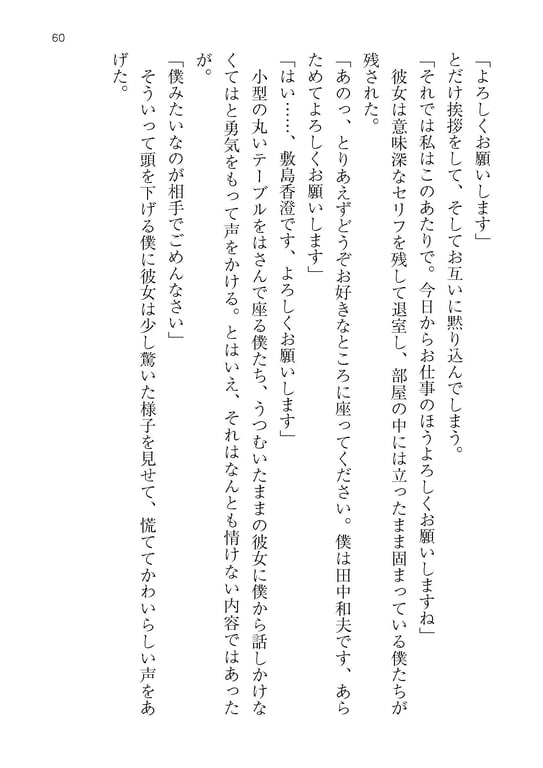 60
「よろしくお願いします」
とだけ挨拶をして、そしてお互いに黙り込んでしまう。
「それでは私はこのあたりで。今日からお仕事のほうよろしくお願いしますね」
彼女は意味深なセリフを残して退室し、部屋の中には立ったまま固まっている僕たちが
残された。
「あのっ、とりあえずどうぞお好きなところに座ってください。僕は田中和夫です、あら
ためてよろしくお願いします」
「はい……、敷島香澄です、よろしくお願いします」
小型の丸いテーブルをはさんで座る僕たち、うつむいたままの彼女に僕から話しかけな
くてはと勇気をもって声をかける。とはいえ、それはなんとも情けない内容ではあった
が。
「僕みたいなのが相手でごめんなさい」
そういって頭を下げる僕に彼女は少し驚いた様子を見せて、慌ててかわいらしい声をあ
げた。